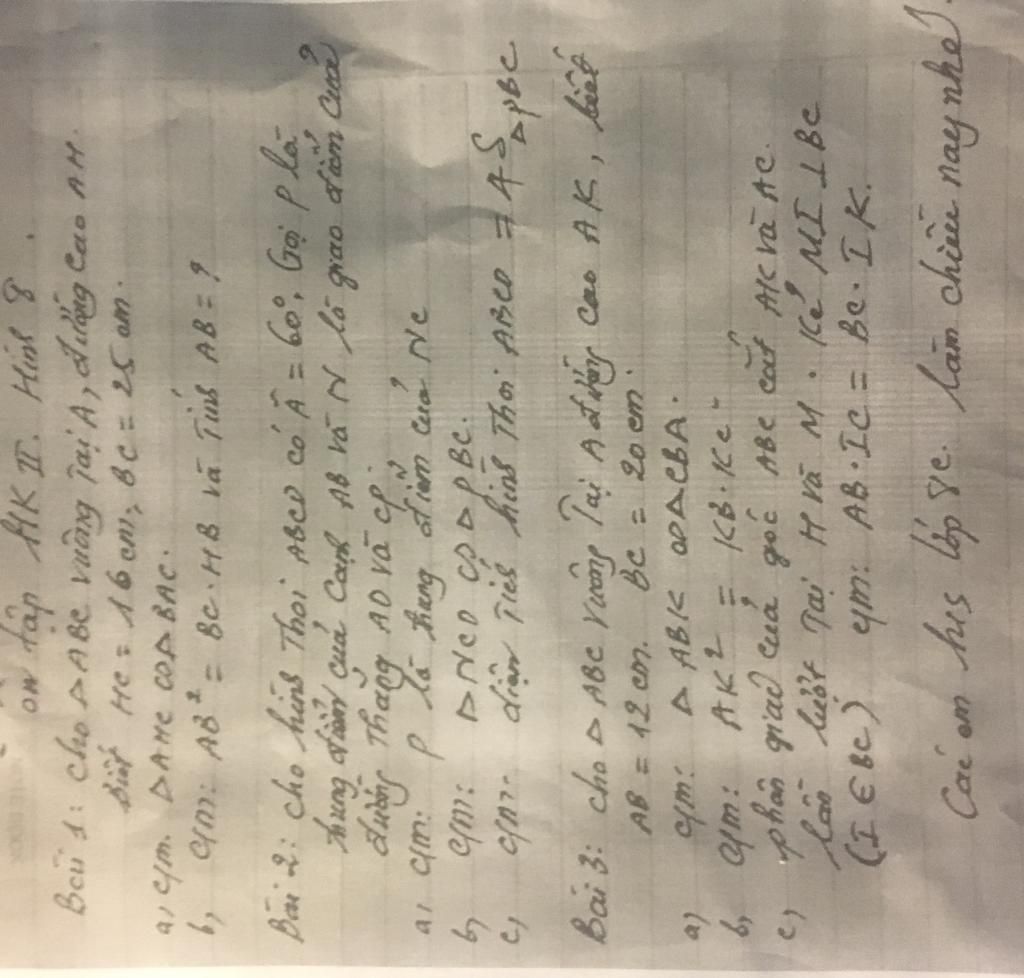 ôn tập HK II. Hình 8.
Bài 1: Cho △ ABC vuông Tại A, đường cao AH.
biết HC = 16 cm, BC = 25 cm.
a, c/m. △ AHC ∽ △ BAC.
b, c/m: AB² = BC . HB và Tính AB = ?
Bài 2: cho hình Thoi ABCD có Â = 60°. Gọi P là
trung điểm của cạnh AB và N là giao điểm của
đường thẳng AD và CP.
a, c/m: P là trung điểm của NC
b, c/m: △ NCD ∽ △ PBC.
c, c/m. diện Tích hình Thoi ABCD = 4 S△PBC
Bài 3: cho △ ABC Vuông Tại A đường cao AK, biết
AB = 12 cm. BC = 20 cm.
a, c/m: △ ABK ∽ △ CBA.
b, c/m: AK² = KB . KC
c, phân giác của góc ABC cắt AK và AC
lần lượt Tại H và M . Kẻ MI ⊥ BC
(I ∈ BC) c/m: AB . IC = BC . IK.
Các em hs lớp 8C. làm chiều nay nhé)